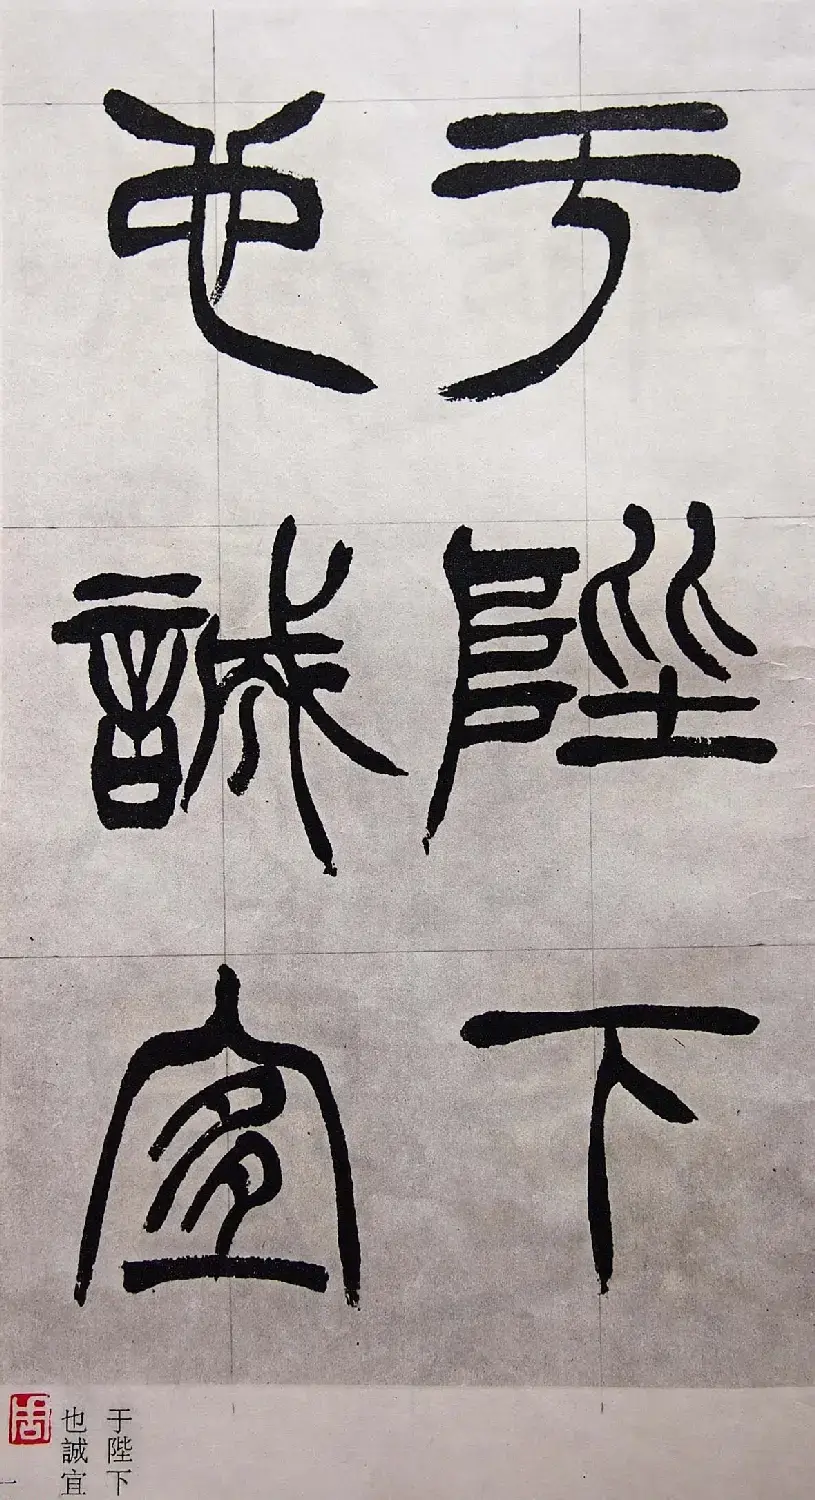 于陛下
也誠宜
于陛下
也誠宜
周
一